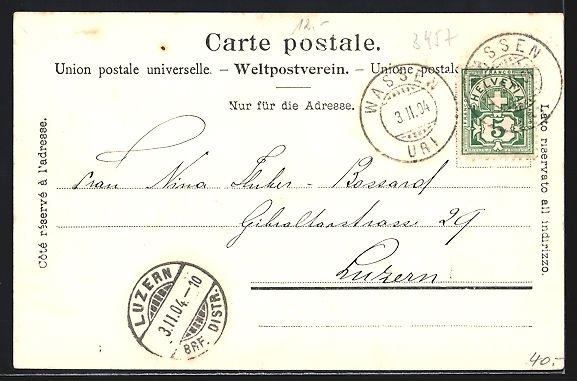 12.-
3457
Carte postale.
Union postale universelle. – Weltpostverein. – Unione postale
Nur für die Adresse.
Côté réservé à l'adresse.
Lato riservato all indirizzo.
WASSEN
3 II. 04
URI
WASSEN
HELVETIA
5
Frau Nina Huber - Bossard
Gibraltarstrasse 29
Luzern
LUZERN
3.II.04.–10
BRF. DISTR.
40.-